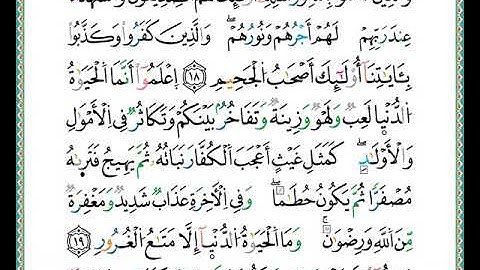 عِندَ رَبِّهِمْ لَهُمْ أَجْرُهُمْ وَنُورُهُمْ ۖ وَالَّذِينَ كَفَرُوا وَكَذَّبُوا
بِـَٔايَـٰتِنَا أُوْلَـٰٓئِكَ أَصْحَـٰبُ الْجَحِيمِ ١٨ اِعْلَمُوٓا أَنَّمَا الْحَيَوٰةُ
الدُّنْيَا لَعِبٌ وَلَهْوٌ وَزِينَةٌ وَتَفَاخُرٌ بَيْنَكُمْ وَتَكَاثُرٌ فِي الْأَمْوَٰلِ
وَالْأَوْلَـٰدِ ۖ كَمَثَلِ غَيْثٍ أَعْجَبَ الْكُفَّارَ نَبَاتُهُ ثُمَّ يَهِيجُ فَتَرَىٰهُ
مُصْفَرًّا ثُمَّ يَكُونُ حُطَـٰمًا ۖ وَفِي الْأَخِرَةِ عَذَابٌ شَدِيدٌ وَمَغْفِرَةٌ
مِّنَ اللَّهِ وَرِضْوَٰنٌ ۖ وَمَا الْحَيَوٰةُ الدُّنْيَآ إِلَّا مَتَـٰعُ الْغُرُورِ ١٩